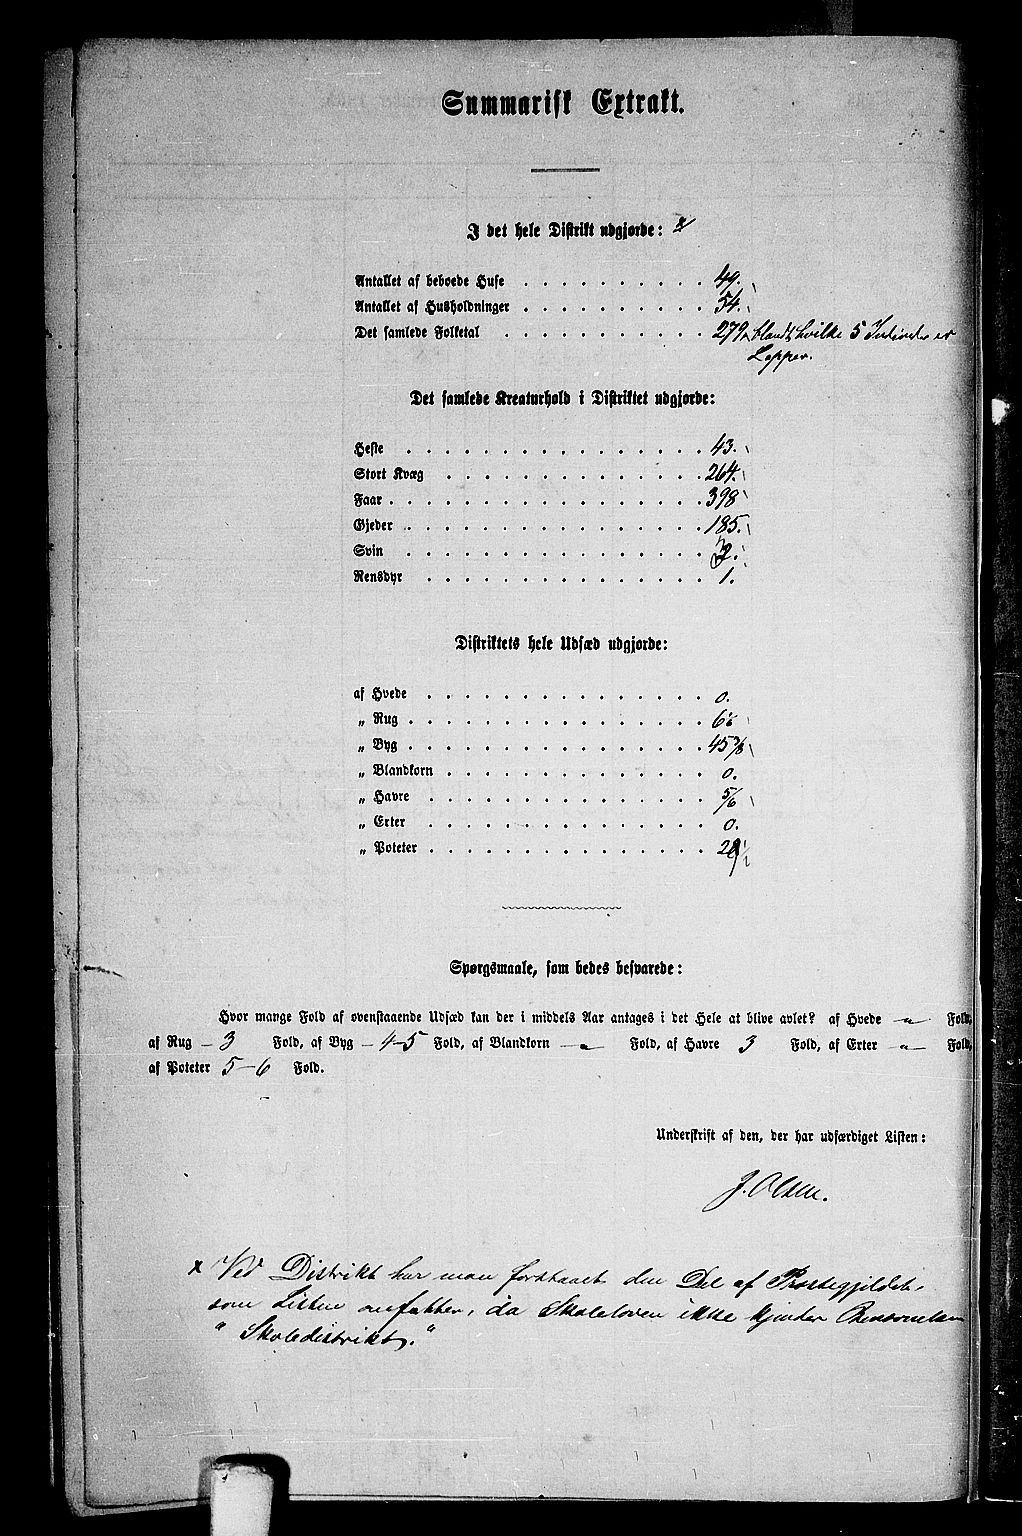 Summarisk Extrakt.
I det hele Distrikt udgjorde: x
Antallet af beboede Huse . . . . . . . . . . 49.
Antallet af Husholdninger . . . . . . . . . . 54.
Det samlede Folketal . . . . . . . . . . . 279, blandt hvilke 5 Individer er
Lapper.
Det samlede Kreaturhold i Distriktet udgjorde:
Heste . . . . . . . . . . . . . . . . 43.
Stort Kvæg . . . . . . . . . . . . . . 264.
Faar . . . . . . . . . . . . . . . . . 398
Gjeder . . . . . . . . . . . . . . . . 185.
Svin . . . . . . . . . . . . . . . . 2.
Rensdyr . . . . . . . . . . . . . . . 1.
Distriktets hele Udsæd udgjorde:
af Hvede . . . . . . . . . . . . . . . 0.
„ Rug . . . . . . . . . . . . . . . .
„ Byg . . . . . . . . . . . . . . . . 45
„ Blandkorn . . . . . . . . . . . . . 0.
„ Havre . . . . . . . . . . . . . . . 5/6
„ Erter . . . . . . . . . . . . . . . 0.
„ Poteter . . . . . . . . . . . . . .
Spørgsmaale, som bedes besvarede:
Hvor mange Fold af ovenstaaende Udsæd kan der i middels Aar antages i det Hele at blive avlet? af Hvede — " — Fold,
af Rug — 3 Fold, af Byg — 4-5 Fold, af Blandkorn — " Fold, af Havre 3 Fold, af Erter — " — Fold,
af Poteter 5-6 Fold.
Underskrift af den, der har udfærdiget Listen:
J. Olsen.
x Ved Distrikt har man forstaaet den Del af Præstegjeldet,
som Listen omfatter, da Skoleloven ikke kjender Benævnelsen
" Skoledistrikt."